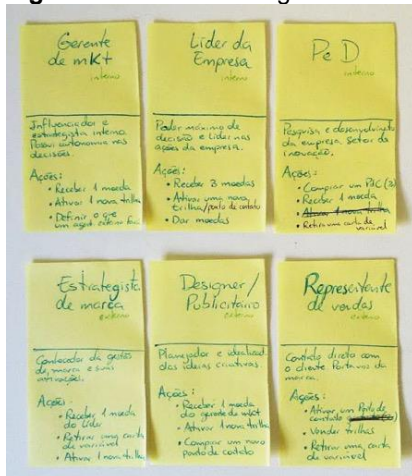 Gerente
de mkt
interno
Influenciador e
estrategista interno
Possui autonomia nas
decisões.
Ações:
• Receber 1 moeda
• Ativar 1 nova trilha
• Definir o que
um agent. externo fará
Líder da
Empresa
interno
Poder máximo de
decisão e Líder nas
ações da empresa.
Ações:
• Receber 3 moedas
• Ativar uma nova
trilha/ponto de contato
• Dar moedas
P e D
interno
Pesquisa e desenvolvimento
da empresa. Setor de
inovação.
Ações:
• Comprar um PdC (3)
• Receber 1 moeda
• Ativar 1 nova trilha
• Retira uma carta de
variável
Estrategista
de marca
externo
Conhecedor da gestão
de marca e suas
Ações:
• Receber 1 moeda
do Líder
• Retirar uma carta
de variável
• Ativar 1 nova trilha
Designer/
Publicitário
externo
Planejador e idealizad.
das ideias criativas.
Ações:
• Receber 1 moeda
do gerente de mkt
• Ativar 1 nova trilha
• Comprar um novo
ponto de contato
Representante
de vendas
externo
Contato direto com
o cliente. Porta voz da
marca.
Ações:
• Ativar um Ponto de
contato
• Vender trilhas
• Retirar uma carta
de variável